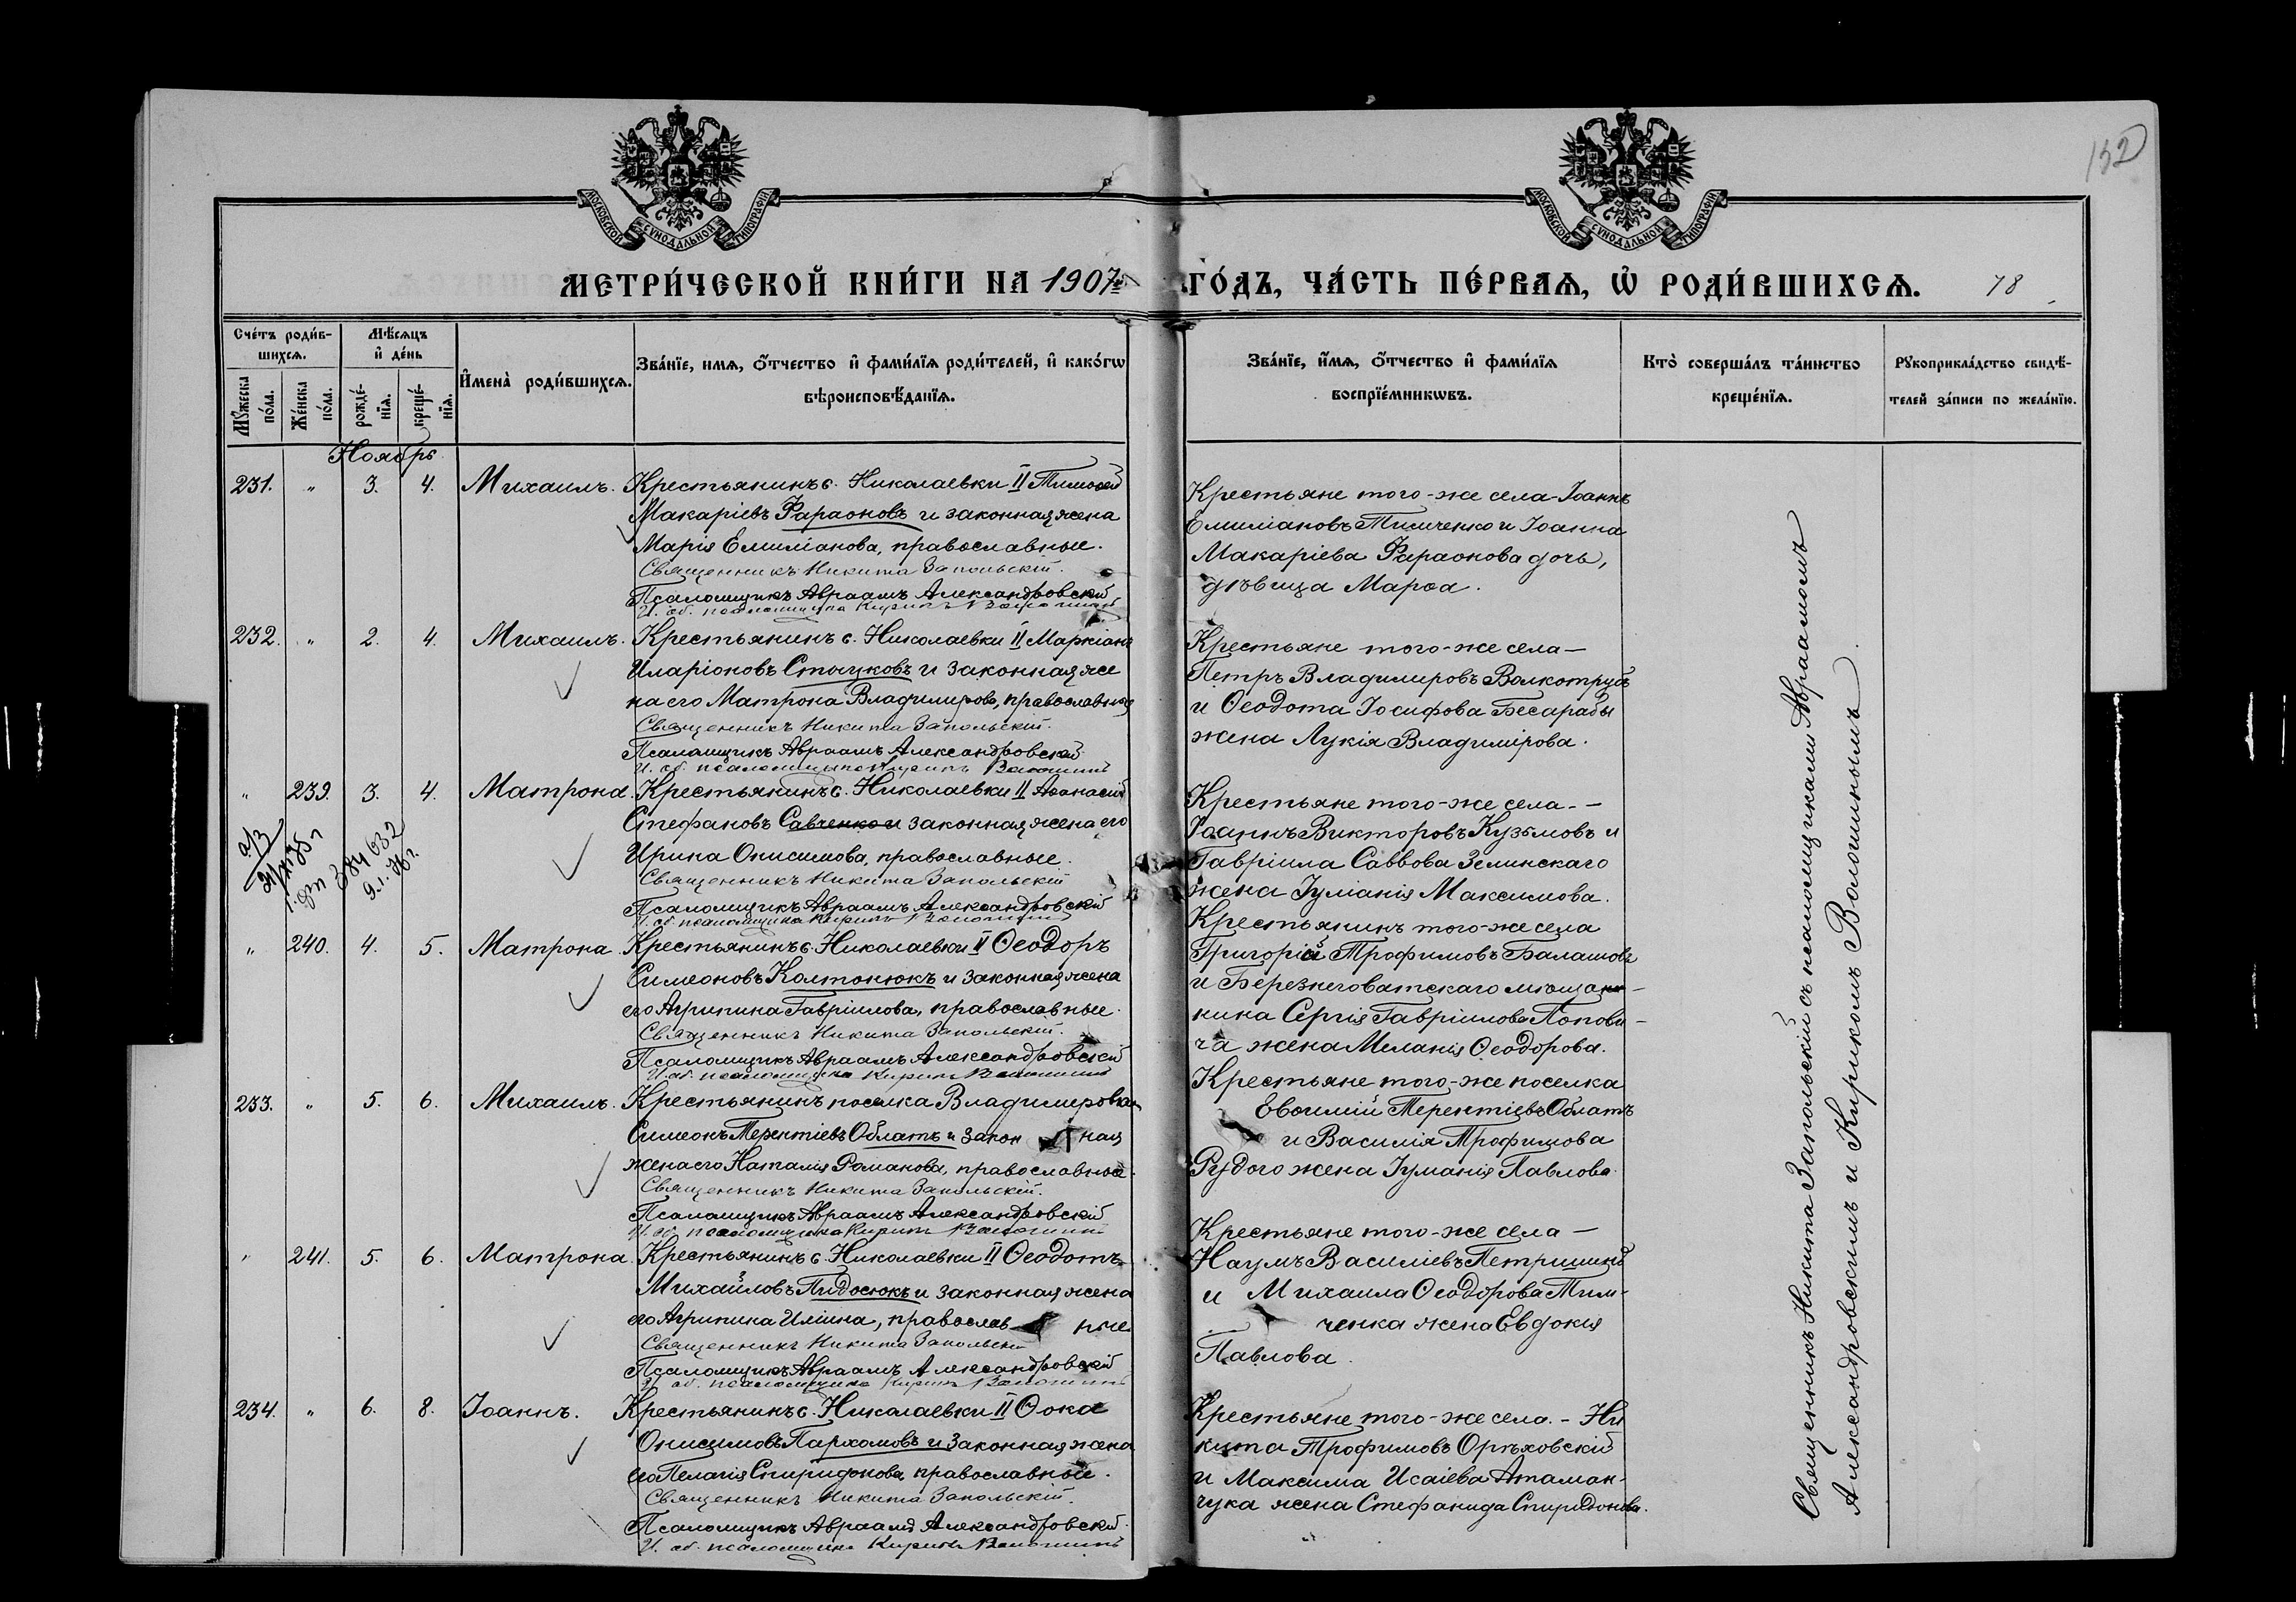 132
МОСКОВСКОЙ СѴНОДАЛЬНОЙ ТИПОГРАФІИ
МОСКОВСКОЙ СѴНОДАЛЬНОЙ ТИПОГРАФІИ
МЕТРИ́ЧЕСКОЙ КНИ́ГИ НА 1907й ГО́ДЪ, ЧА́СТЬ ПЕ́РВАѦ, Ѽ РОДИ́ВШИХСѦ. 78
Сче́тъ роди́в-
шихсѧ.
Мꙋ́жеска по́ла.
Же́нска по́ла.
Мѣ́сѧцъ
и҆ де́нь
рожде́-
нїѧ.
креще́-
нїѧ.
И҆мена̀ роди́вшихсѧ.
Зва́нїе, имѧ, ѻ҆́тчество и҆ фами́лїѧ роди́телей, и҆ како́гѡ
вѣроисповѣ́данїѧ.
Зва́нїе, и҆́мѧ, ѻ҆́тчество и҆ фами́лїѧ
воспрїе́мникѡвъ.
Кто̀ соверша́лъ та́инство
креще́нїѧ.
Рꙋкоприкла́дство свидѣ́-
телей за́писи по жела́нїю.
Ноябрь
231. " 3. 4. Михаилъ. Крестьянинъ с. Николаевки II Тимоѳей
Макаріевъ Фараоновъ и законная жена
Марія Емиліанова, православные.
Священникъ Никита Запольскій.
Псаломщикъ Авраамъ Александровскій
И. об. псаломщика Кирикъ Волошинъ
Крестьяне того-же села Іоаннъ
Емиліановъ Тимченко и Іоанна
Макаріева Фараонова дочь,
дѣвица Марѳа.
232. " 2. 4. Михаилъ. Крестьянинъ с. Николаевки II Маркіанъ
Иларіоновъ Стоцковъ и законная же
на его Матрона Владимирова, православные
Священникъ Никита Запольскій.
Псаломщикъ Авраамъ Александровскій
И. об. псаломщика Кирикъ Волошинъ
Крестьяне того-же села —
Петръ Владимировъ Волкотрубъ
и Ѳеодота Іосифова Бесарабы
жена Лукія Владимірова.
" 239. 3. 4. Матрона. Крестьянинъ с. Николаевки II Аѳанасій
Стефановъ Савченко и законная жена его
Ирина Онисимова, православные.
Священникъ Никита Запольскій
Псаломщикъ Авраамъ Александровскій
И. об. псаломщика Кирикъ Волошинъ
384632
Крестьяне того-же села. —
Іоаннъ Викторовъ Кузьмовъ и
Гавріила Саввова Зелинскаго
жена Іуліанія Максимова.
" 240. 4. 5. Матрона. Крестьянинъ с. Николаевки II Ѳеодоръ
Симеоновъ Колтонюкъ и законная жена
его Агрипина Гавріилова, православные.
Священникъ Никита Запольскій.
Псаломщикъ Авраамъ Александровскій
И. об. псаломщика Кирикъ Волошинъ
Крестьянинъ того-же села
Григорій Трофимовъ Балашовъ
и Березнеговатскаго мѣщани-
нина Сергія Гавріилова Попови-
ча жена Меланія Ѳеодорова.
233. " 5. 6. Михаилъ. Крестьянинъ поселка Владимировки
Симеонъ Терентіевъ Облатъ и закон ная
жена его Наталія Романова, православные.
Священникъ Никита Запольскій.
Псаломщикъ Авраамъ Александровскій
И. об. псаломщика Кирикъ Волошинъ
Крестьяне того-же поселка
Евѳимій Терентіевъ Облатъ
и Василія Трофимова
Рудого жена Іуліанія Павлова.
" 241. 5. 6. Матрона. Крестьянинъ с. Николаевки II Ѳеодотъ
Михайловъ Пидосюкъ и законная жена
его Агрипина Иліина, православ ные
Священникъ Никита Запольскій
Псаломщикъ Авраамъ Александровскій
И. об. псаломщика Кирикъ Волошинъ
Крестьяне того-же села —
Наумъ Василіевъ Петришинъ
и Михаила Ѳеодорова Тим-
ченка жена Евдокія
Павлова.
234. " 6. 8. Іоаннъ. Крестьянинъ с. Николаевки II Ѳока
Онисимовъ Пархомовъ и законная жена
его Пелагія Спиридонова, православные.
Священникъ Никита Запольскій.
Псаломщикъ Авраамъ Александровскій.
И. об. псаломщика Кирикъ Волошинъ
Крестьяне того-же села. - Ни
кита Трофимовъ Орѣховскій
и Максима Исаіева Атаман-
чука жена Стефанида Спиридонова.
Священникъ Никита Запольскій съ псаломщиками Авраамомъ
Александровскимъ и Кирикомъ Волошинымъ.